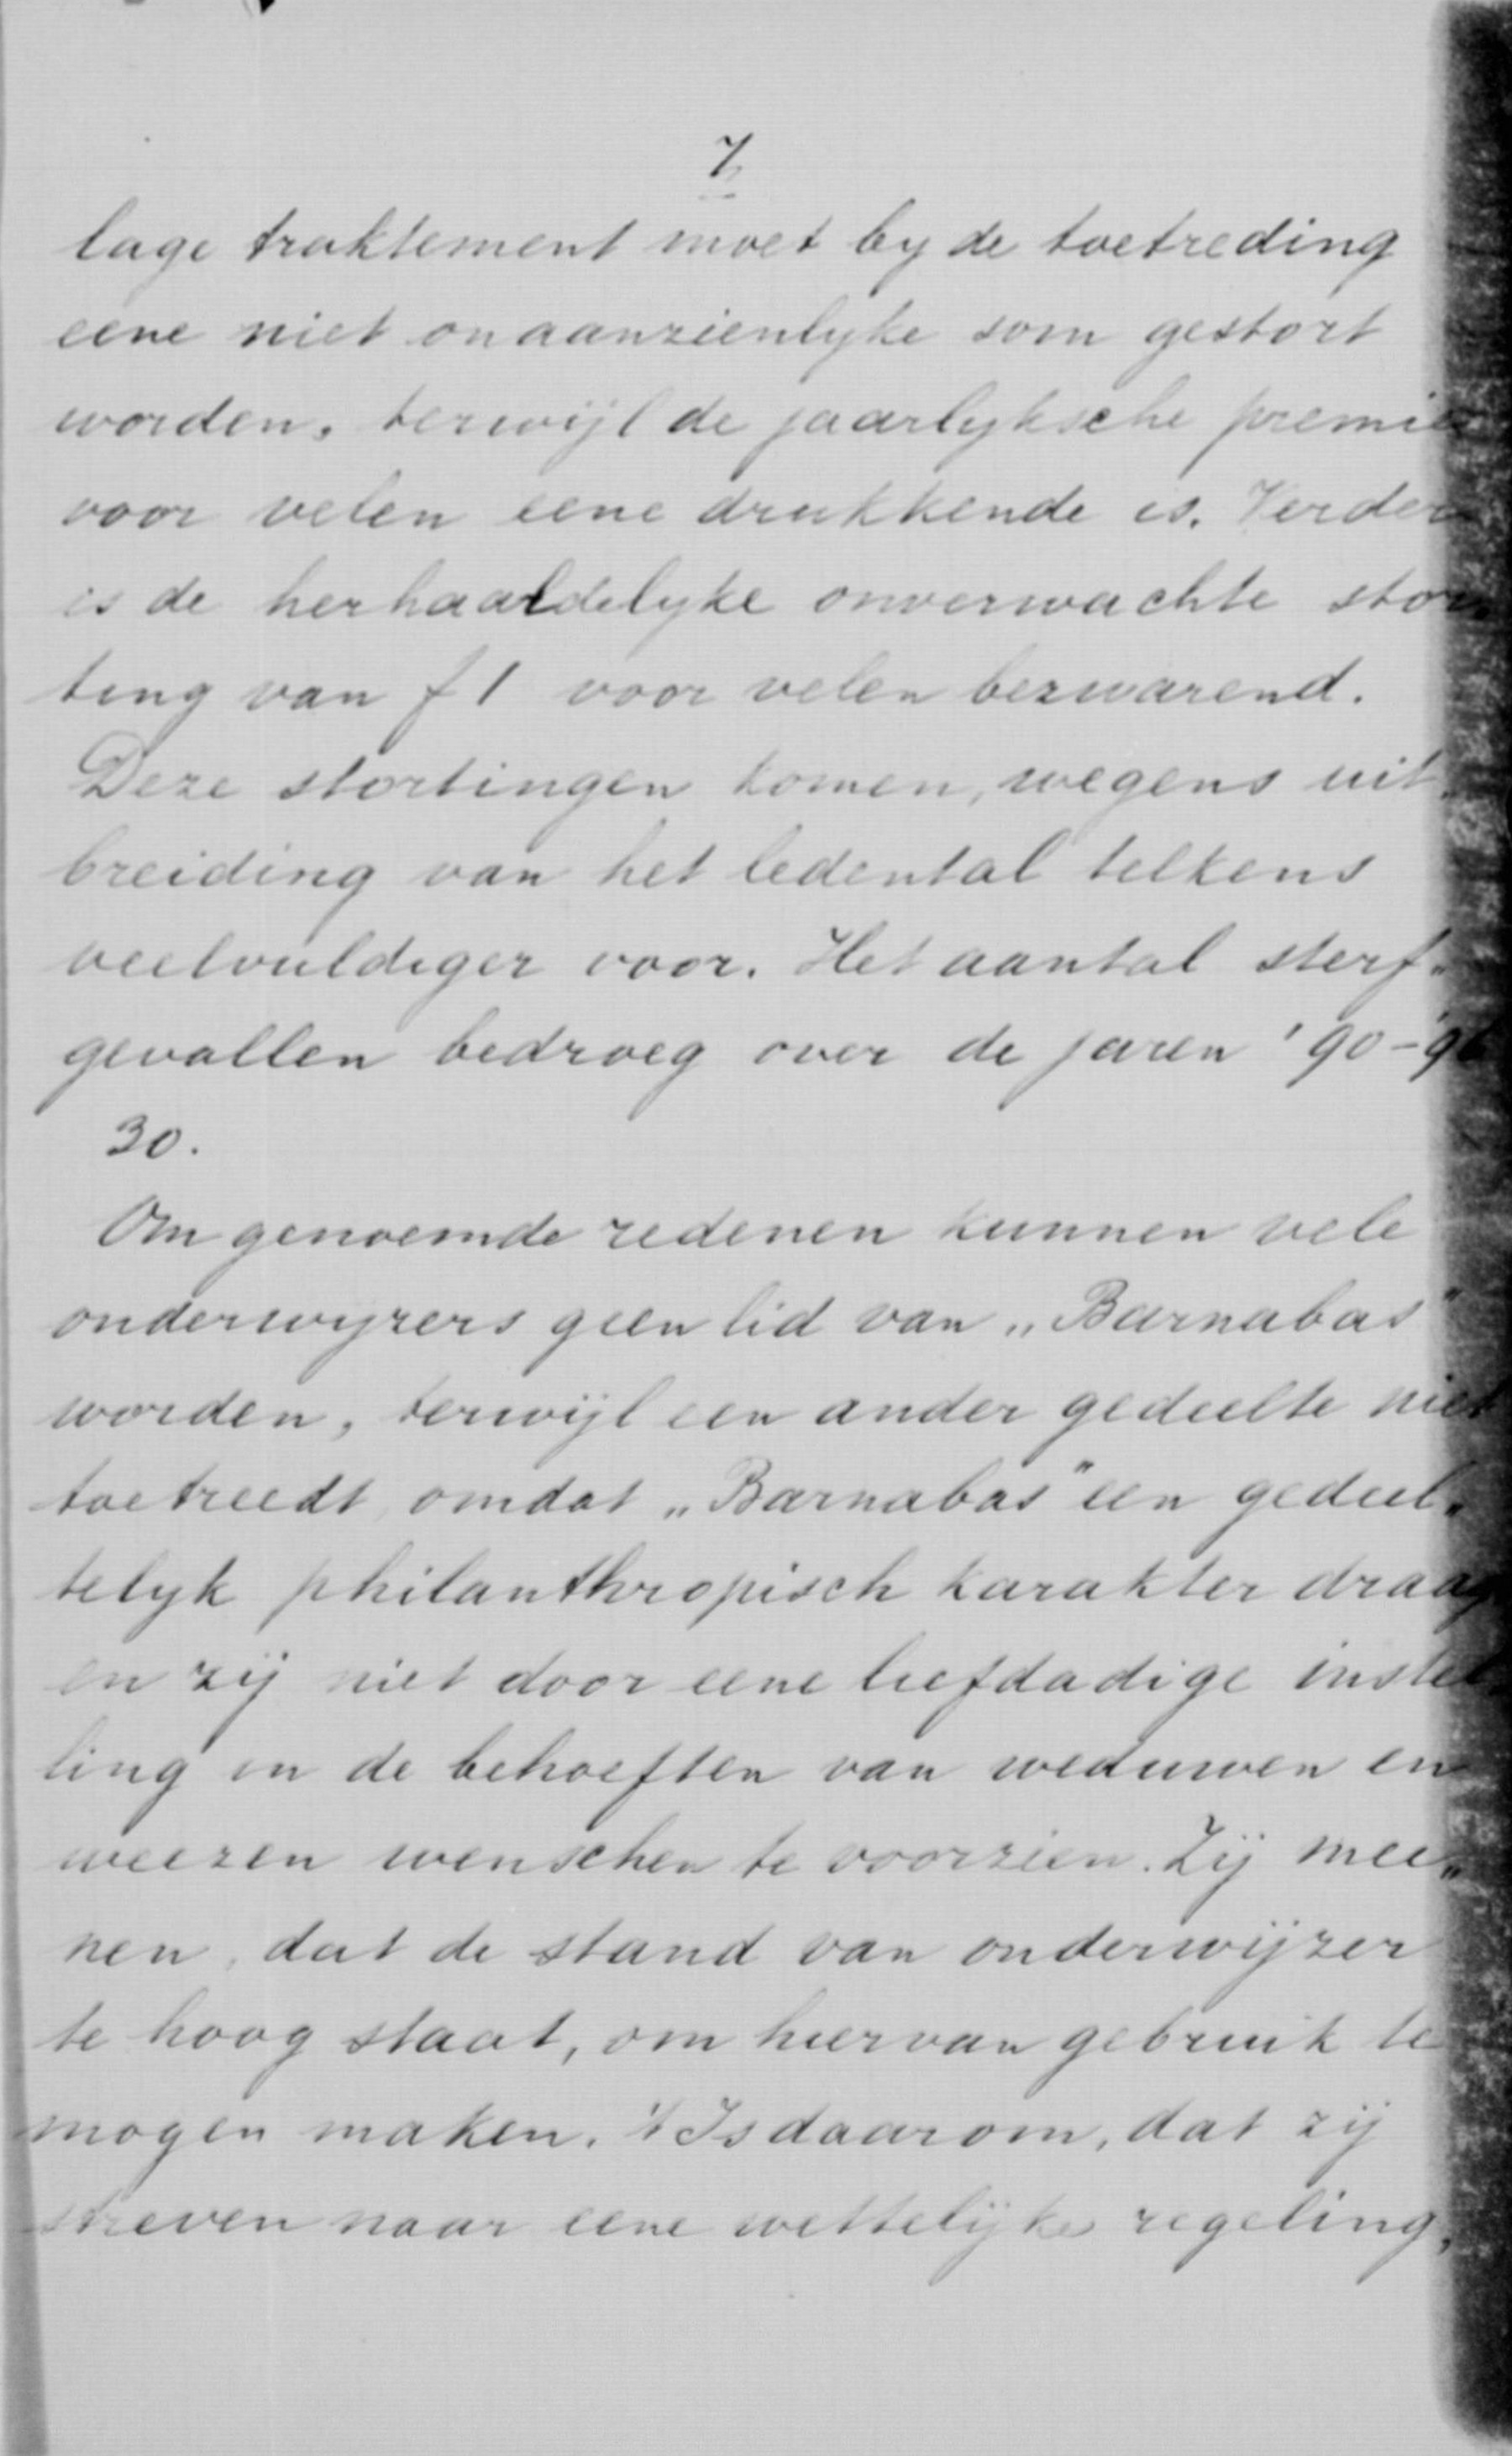 7
lage traktement moet by de toetreding
eene niet onaanzienlyke som gestort
worden, terwijl de jaarlyksche premie
voor velen eene drukkende is. Verder
is de herhaaldelyke onverwachte stor„
ting van f 1 voor velen bezwarend.
Deze stortingen komen, wegens uit„
breiding van het ledental telkens
veelvuldiger voor. Het aantal sterf„
gevallen bedroeg over de jaren '90-
30.
Om genoemde redenen kunnen vele
onderwyzers geen lid van „Barnabas"
worden, terwijl een ander gedeelte niet
toetreedt, omdat „Barnabas" een gedeel„
telyk philanthropisch karakter draag
en zij niet door eene liefdadige instel
ling in de behoeften van weduwen en
weezen wenschen te voorzien. Zij mee„
nen, dat de stand van onderwijzer
te hoog staat, om hiervan gebruik te
mogen maken. 't Is daarom, dat zij
streven naar eene wettelijke regeling,